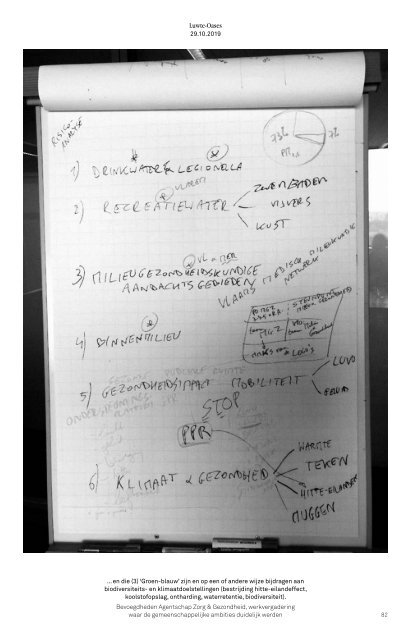 Luwte-Oases
29.10.2019
RISICO-
ANALYSE
73%
7%
1) DRINKWATER & LEGIONELLA
VLAREM
2) RECREATIEWATER
ZWEMBADEN
VIJVERS
KUST
3) MILIEUGEZONDHEIDSKUNDIGE
AANDACHTSGEBIEDEN
VLAAMS MEDISCH MILIEUKUNDIG
NETWERK
4) BINNENMILIEU
5) GEZONDHEIDSIMPACT MOBILITEIT
LUVO
GELUID
STOP
PPR
6) KLIMAAT & GEZONDHEID
WARMTE
TEKEN
HITTE-EILANDEN
MUGGEN
... en die (3) 'Groen-blauw' zijn en op een of andere wijze bijdragen aan
biodiversiteits- en klimaatdoelstellingen (bestrijding hitte-eilandeffect,
koolstofopslag, ontharding, waterretentie, biodiversiteit).
Bevoegdheden Agentschap Zorg & Gezondheid, werkvergadering
waar de gemeenschappelijke ambities duidelijk werden
82